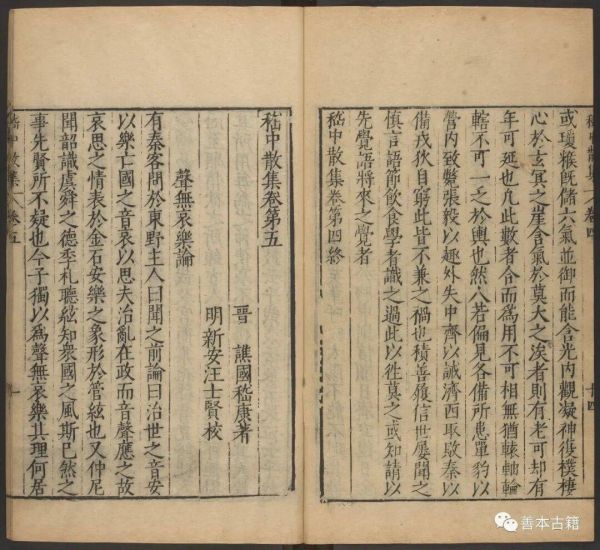 或瓊糇既儲六氣並御而能含光內觀凝神復樸棲
心於玄冥之崖含氣於莫大之涘者則有老可却有
年可延也凡此數者合而為用不可相無猶轅軸輪
轄不可一乏於輿也然人若偏見各備所患單豹以
營內致斃張毅以趣外失中齊以誡濟西取敗秦以
備戎狄自窮此皆不兼之禍也積善履信世屢聞之
慎言語節飲食學者識之過此以徃莫之或知請以
先覺語將來之覺者
嵇中散集卷第四終
嵇中散集 卷四
十四
嵇中散集 卷五
一
嵇中散集卷第五
晉 譙國嵇康著
明新安汪士賢校
聲無哀樂論
有秦客問於東野主人曰聞之前論曰治世之音安
以樂亡國之音哀以思夫治亂在政而音聲應之故
哀思之情表於金石安樂之象形於管絃也又仲尼
聞韶識虞舜之德季札聽絃知衆國之風斯巳然之
事先賢所不疑也今子獨以為聲無哀樂其理何居
善本古籍